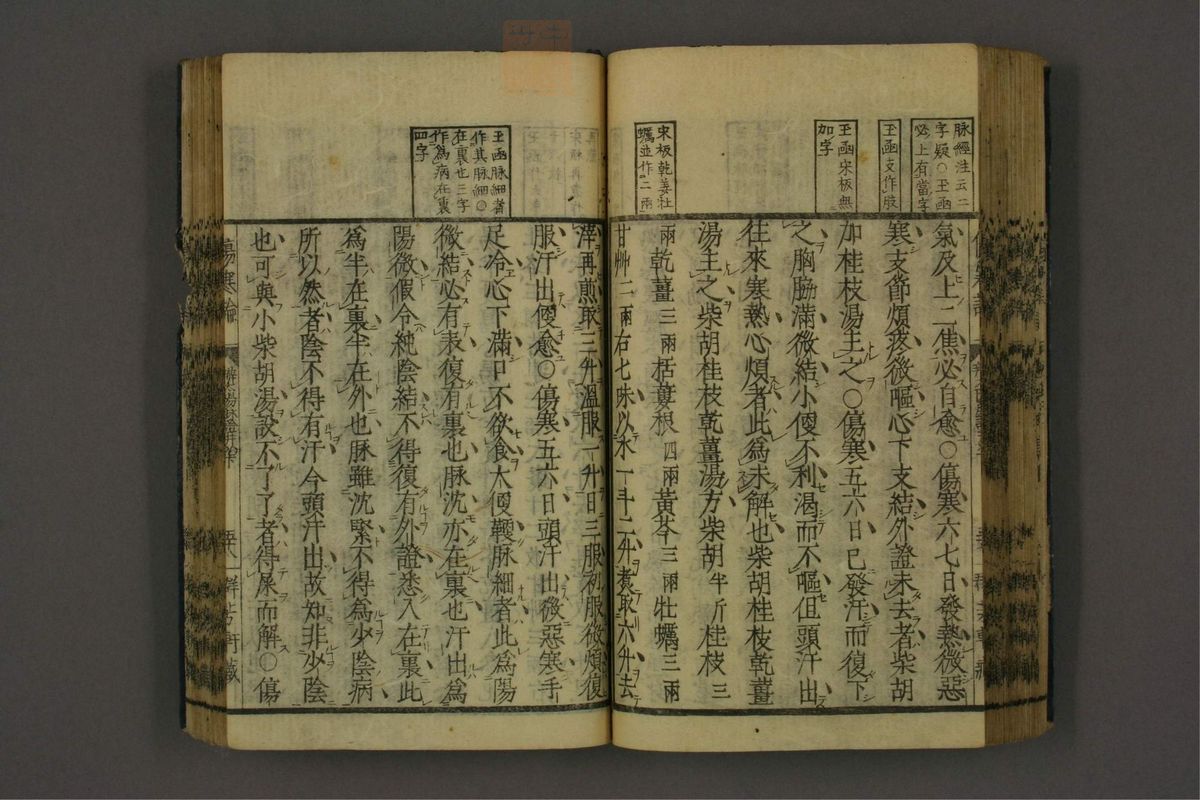 脉經注云二
字疑○玉函
必上有當字
玉函支作肢
玉函宋板無
加字
宋板乾姜牡
蠣並作二兩
氣及上二焦必自愈○傷寒六七日發熱微惡
寒支節煩疼微嘔心下支結外證未去者柴胡
加桂枝湯主之○傷寒五六日已發汗而復下
之胸脇滿微結小便不利渴而不嘔但頭汗出
往來寒熱心煩者此為未解也柴胡桂枝乾薑
湯主之柴胡桂枝乾薑湯方柴胡半斤桂枝三
兩乾薑三兩栝蔞根四兩黃芩三兩牡蠣三兩
甘艸二兩右七味以水一斗二升煮取六升去
玉函脉細者
作其脉細○
在裏也三字
作為病在裏
四字
滓再煎取三升溫服一升日三服初服微煩復
服汗出便愈○傷寒五六日頭汗出微惡寒手
足冷心下滿口不欲食大便鞕脉細者此為陽
微結必有表復有裏也脉沈亦在裏也汗出為
陽微假令純陰結不得復有外證悉入在裏此
為半在裏半在外也脉雖沈緊不得為少陰病
所以然者陰不得有汗今頭汗出故知非少陰
也可與小柴胡湯設不了了者得屎而解○傷
傷寒論